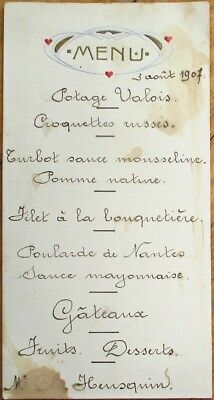 MENU
3 août 1907
Potage Valois.
Croquettes russes.
Turbot sauce mousseline.
Pomme nature.
Filet à la bouquetière.
Poularde de Nantes.
Sauce mayonnaise.
Gâteaux
Fruits. Desserts.
Heusquin.